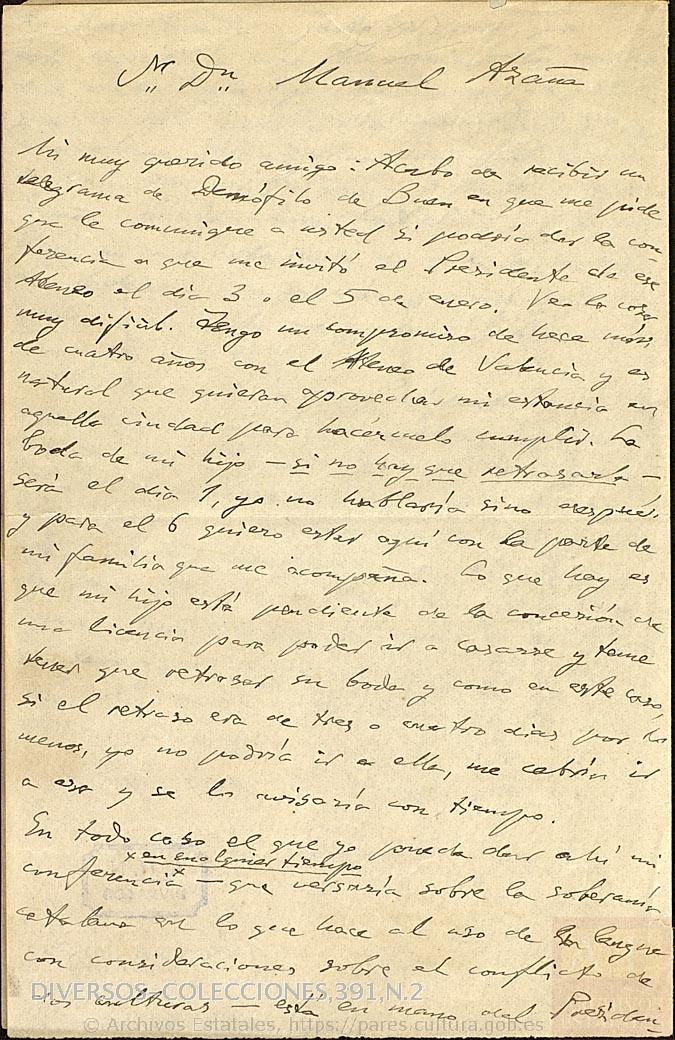 Sr Dn Manuel Azaña
Mi muy querido amigo: Acabo de recibir un
telegrama de Demófilo de Buen en que me pide
que le comunique a usted si podría dar la con-
ferencia a que me invitó el Presidente de ese
Ateneo el dia 3 o el 5 de enero. Veo la cosa
muy difícil. Tengo un compromiso de hace más
de cuatro años con el Ateneo de Valencia y es
natural que quieran aprovechar mi estancia en
aquella ciudad para hacérmelo cumplir. La
boda de mi hijo — si no hay que retrasarla —
será el dia 1, yo no hablaría sino después
y para el 6 quiero estar aquí con la parte de
mi familia que me acompaña. Lo que hay es
que mi hijo está pendiente de la concesión de
una licencia para poder ir a casarse y teme
tener que retrasar su boda y como en este caso,
si el retraso era de tres o cuatro dias por lo
menos, yo no podría ir a ella, me cabría ir
a esa y se lo avisaría con tiempo.
En todo caso el que yo pueda dar ahí mi
x en cualquier tiempo
conferencia x — que versaría sobre la soberanía
catalana en lo que hace al uso de su lengua
con consideraciones sobre el conflicto de
las culturas — está en mano del Presiden-
DIVERSOS-COLECCIONES,391,N.2
© Archivos Estatales, https://pares.cultura.gob.es